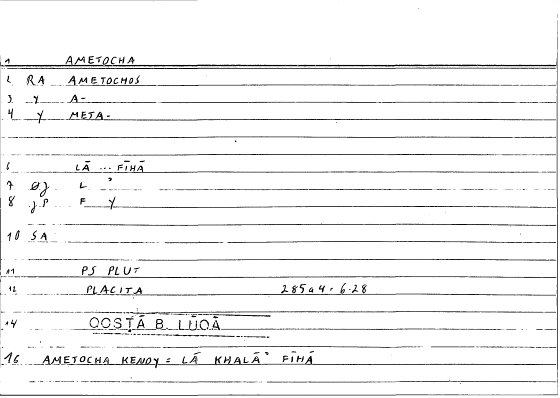 1 AMETOCHA
2 RA AMETOCHOS
3 Y A-
4 Y META-
6 LĀ ... FĪHĀ
7 ØJ L ʾ
8 JP F Y
10 SA
11 PS PLUT
12 PLACITA 285a4. 6-28
14 QOSṬĀ B. LŪQĀ
16 AMETOCHA KENOY = LĀ KHALĀʾ FĪHĀ